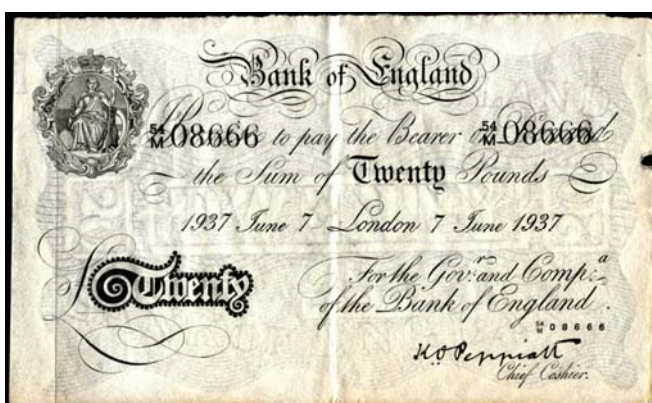 Bank of England
54/M 08666 to pay the Bearer on Demand 54/M 08666
the Sum of Twenty Pounds
1937 June 7 London 7 June 1937
Twenty
For the Govr. and Compa.
of the Bank of England.
54/M 08666
K O Peppiatt
Chief Cashier.